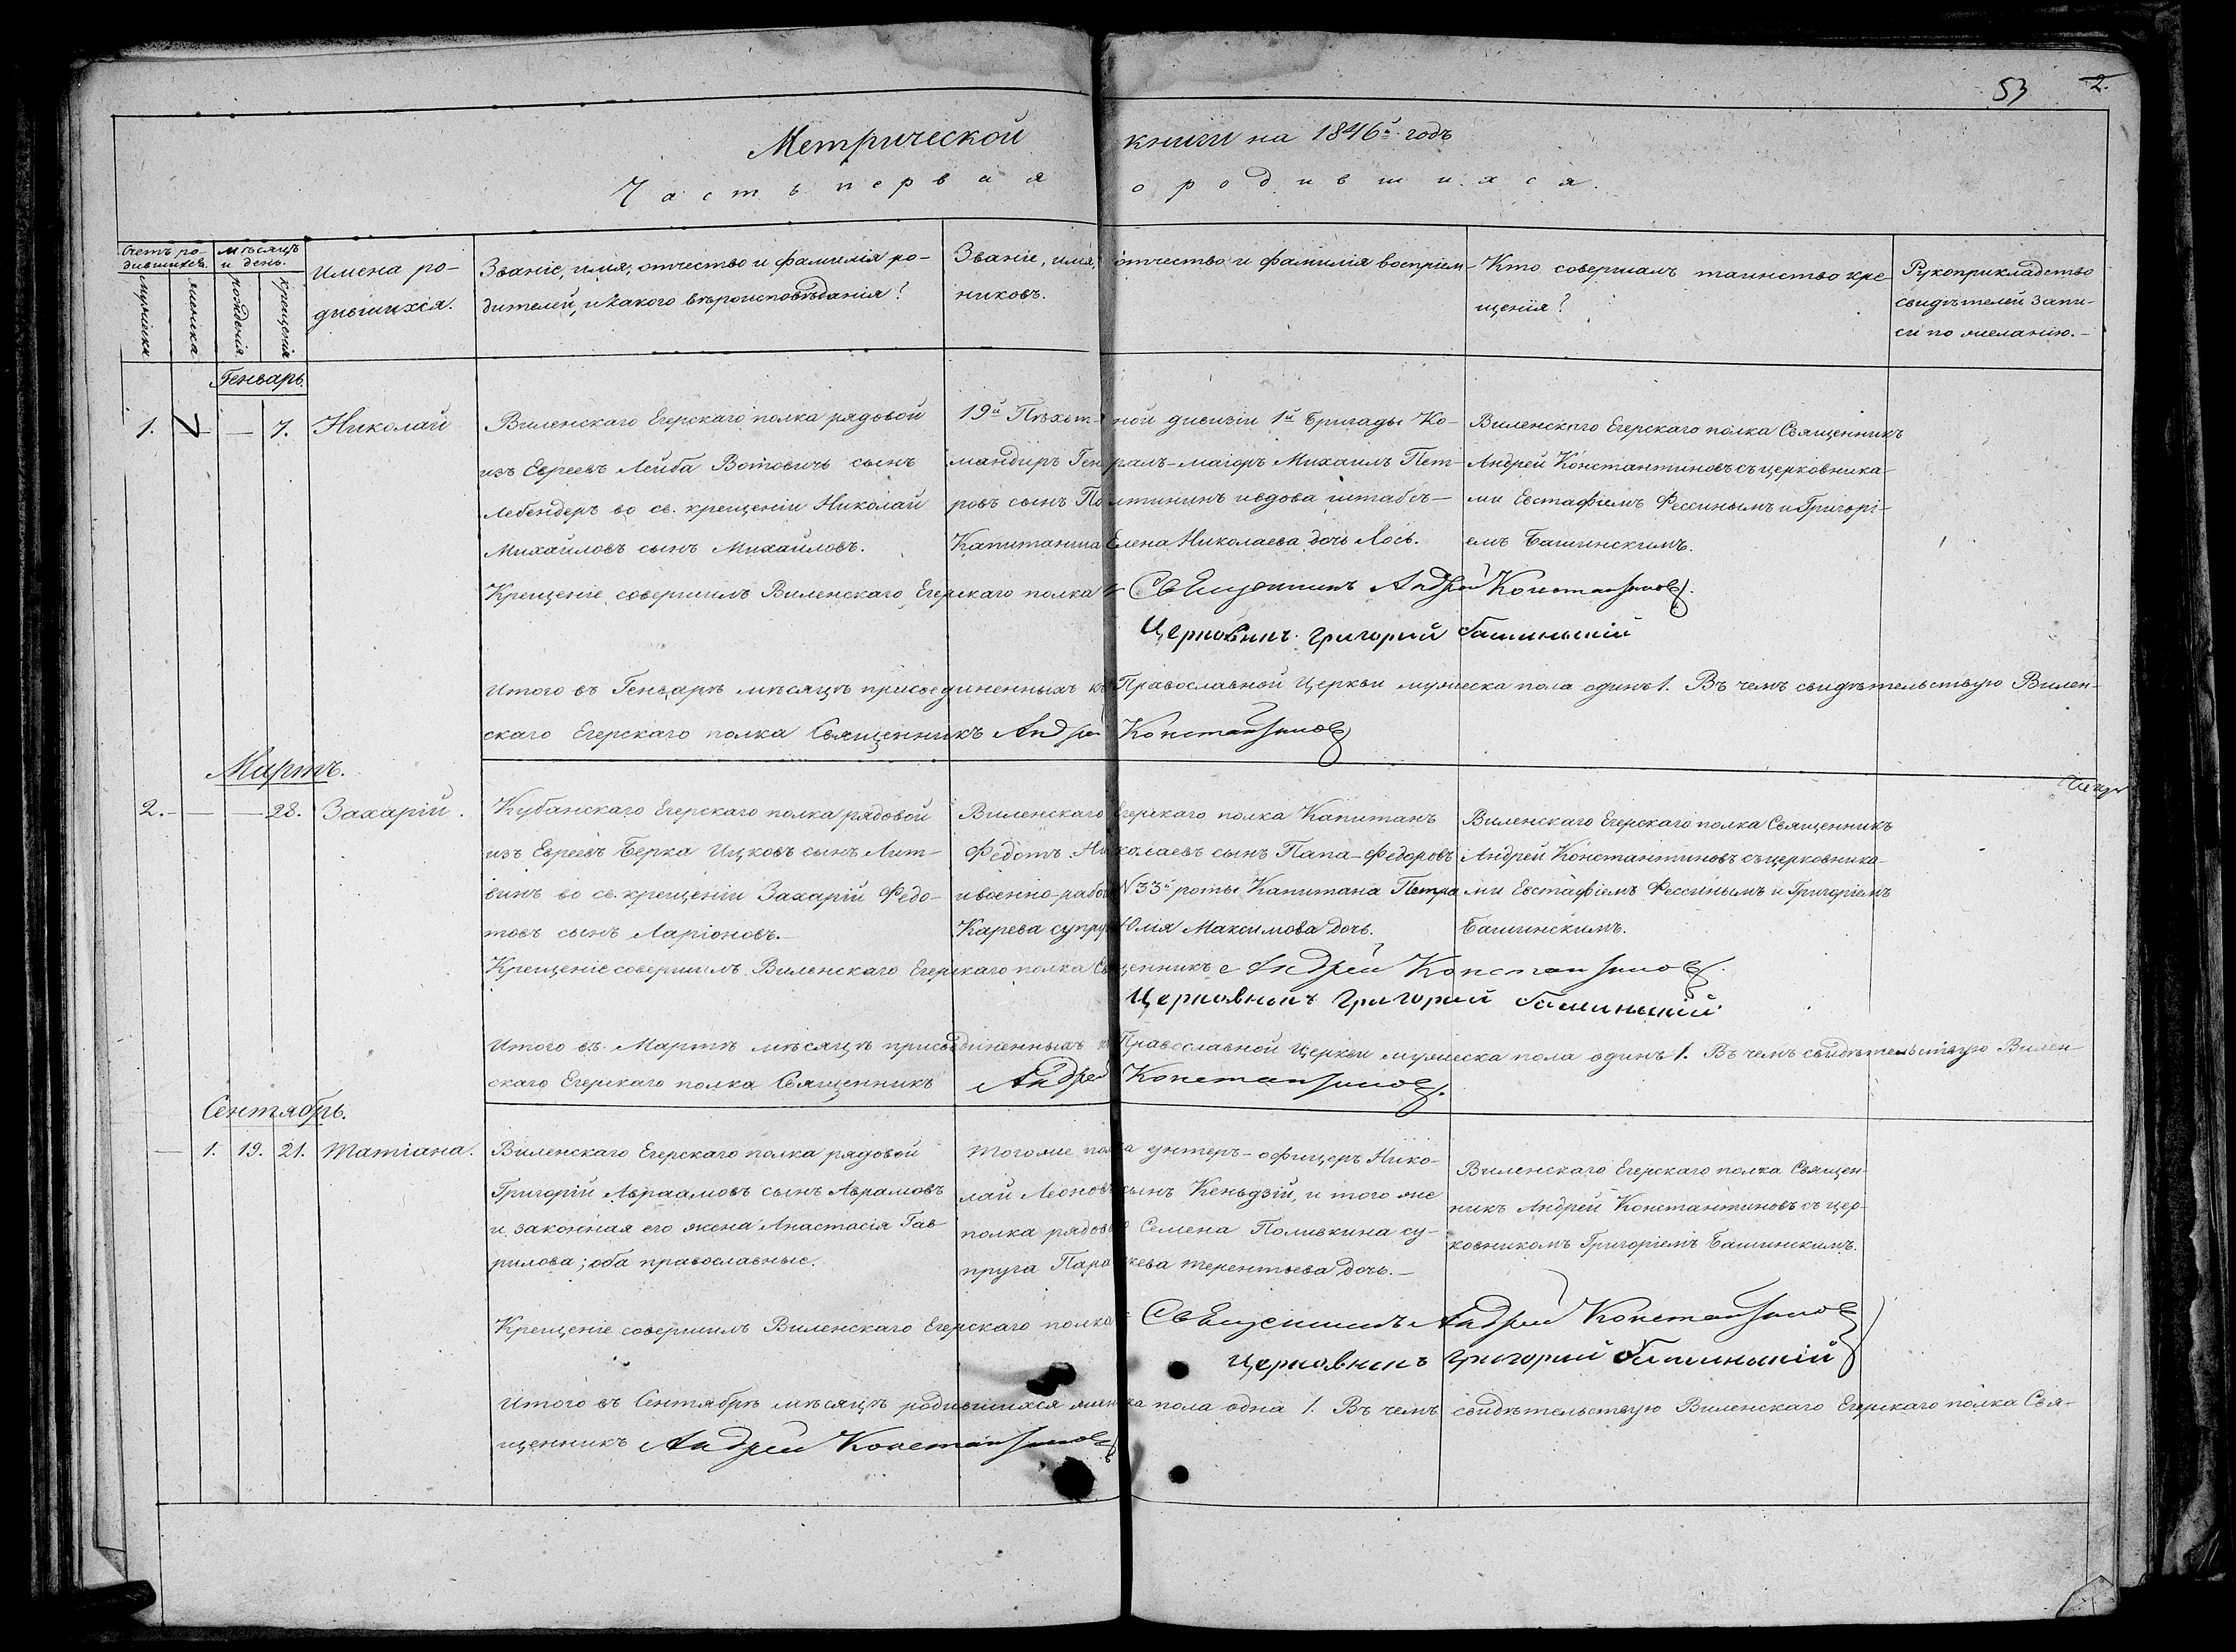 53 2.
Метрической книги на 1846й годъ
Часть первая о родившихся.
Счетъ родившихся.
мужеска
женска
мѣсяцъ и день.
рожденія
крещенія
Имена ро-
дившихся.
Званіе, имя, отчество и фамилія ро-
дителей, и какого вѣроисповѣданія?
Званіе, имя, отчество и фамилія воспріем-
никовъ.
Кто совершалъ таинство кре
щенія?
Рукоприкладство
свидѣтелей запи-
си по желанію.-
Генварь.
1. — — 7. Николай
Виленскаго Егерскаго полка рядовой
изъ Евреевъ Лейба Вотовичь сынъ
Лебендеръ во св. крещеніи Николай
Михайловъ сынъ Михайловъ.
19й Пѣхотной дивизіи 1й Бригады Ко-
мандиръ Генералъ-маіоръ Михаилъ Пет-
ровъ сынъ Полтининъ и вдова штабсъ-
Капитанша Елена Николаева дочь Лось.
Виленскаго Егерскаго полка Священникъ
Андрей Константиновъ съ церковника-
ми Евстафіемъ Фессинымъ и Григорі-
емъ Башинскимъ.
Крещеніе совершилъ Виленскаго Егерскаго полка Священникъ Андрей Константиновъ.
Церковникъ Григорий Башинский
Итого въ Генварѣ мѣсяцѣ присоединенныхъ къ Православной Церкви мужеска пола одинъ 1. Въ чемъ свидѣтельствую Вилен-
скаго Егерскаго полка Священникъ Андрей Константиновъ
Мартъ.
2.- — — 28. Захарій.
Кубанскаго Егерскаго полка рядовой
изъ Евреевъ Берка Ицковъ сынъ Лит-
винъ во св. крещеніи Захарій Федо-
товъ сынъ Ларіоновъ.-
Виленскаго Егерскаго полка Капитанъ
Федотъ Николаевъ сынъ Папа-Федоровъ
и военно-рабочей N33й роты Капитана Петра
Карева супруга Юлія Максимова дочь.
Виленскаго Егерскаго полка Священникъ
Андрей Константиновъ съ церковника-
ми Евстафіемъ Фессинымъ и Григоріемъ
Башинскимъ.
Крещеніе совершилъ Виленскаго Егерскаго полка Священникъ Андрей Константиновъ.
Церковникъ Григорий Башинский
Итого въ Мартѣ мѣсяцѣ присоединенныхъ къ Православной Церкви мужеска пола одинъ 1. Въ чемъ свидѣтельствую Вилен-
скаго Егерскаго полка Священникъ Андрей Константиновъ.
Сентябрь.
— 1. 19. 21. Татіана.
Виленскаго Егерскаго полка рядовой
Григорій Авраамовъ сынъ Аврамовъ
и законная его жена Анастасія Гав
рилова; оба православные.
Тогоже полка унтеръ-офицеръ Нико-
лай Леоновъ сынъ Кеньдзій, и того же
полка рядоваго Семена Поливкина су-
пруга Параскева Терентьева дочь.-
Виленскаго Егерскаго полка Священ-
никъ Андрей Константиновъ съ цер-
ковникомъ Григоріемъ Башинскимъ.
Крещеніе совершилъ Виленскаго Егерскаго полка Священникъ Андрей Константиновъ
Церковникъ Григорий Башинский
Итого въ Сентябрѣ мѣсяцѣ родившихся женска пола одна 1. Въ чемъ свидѣтельствую Виленскаго Егерскаго полка Свя-
щенникъ Андрей Константиновъ